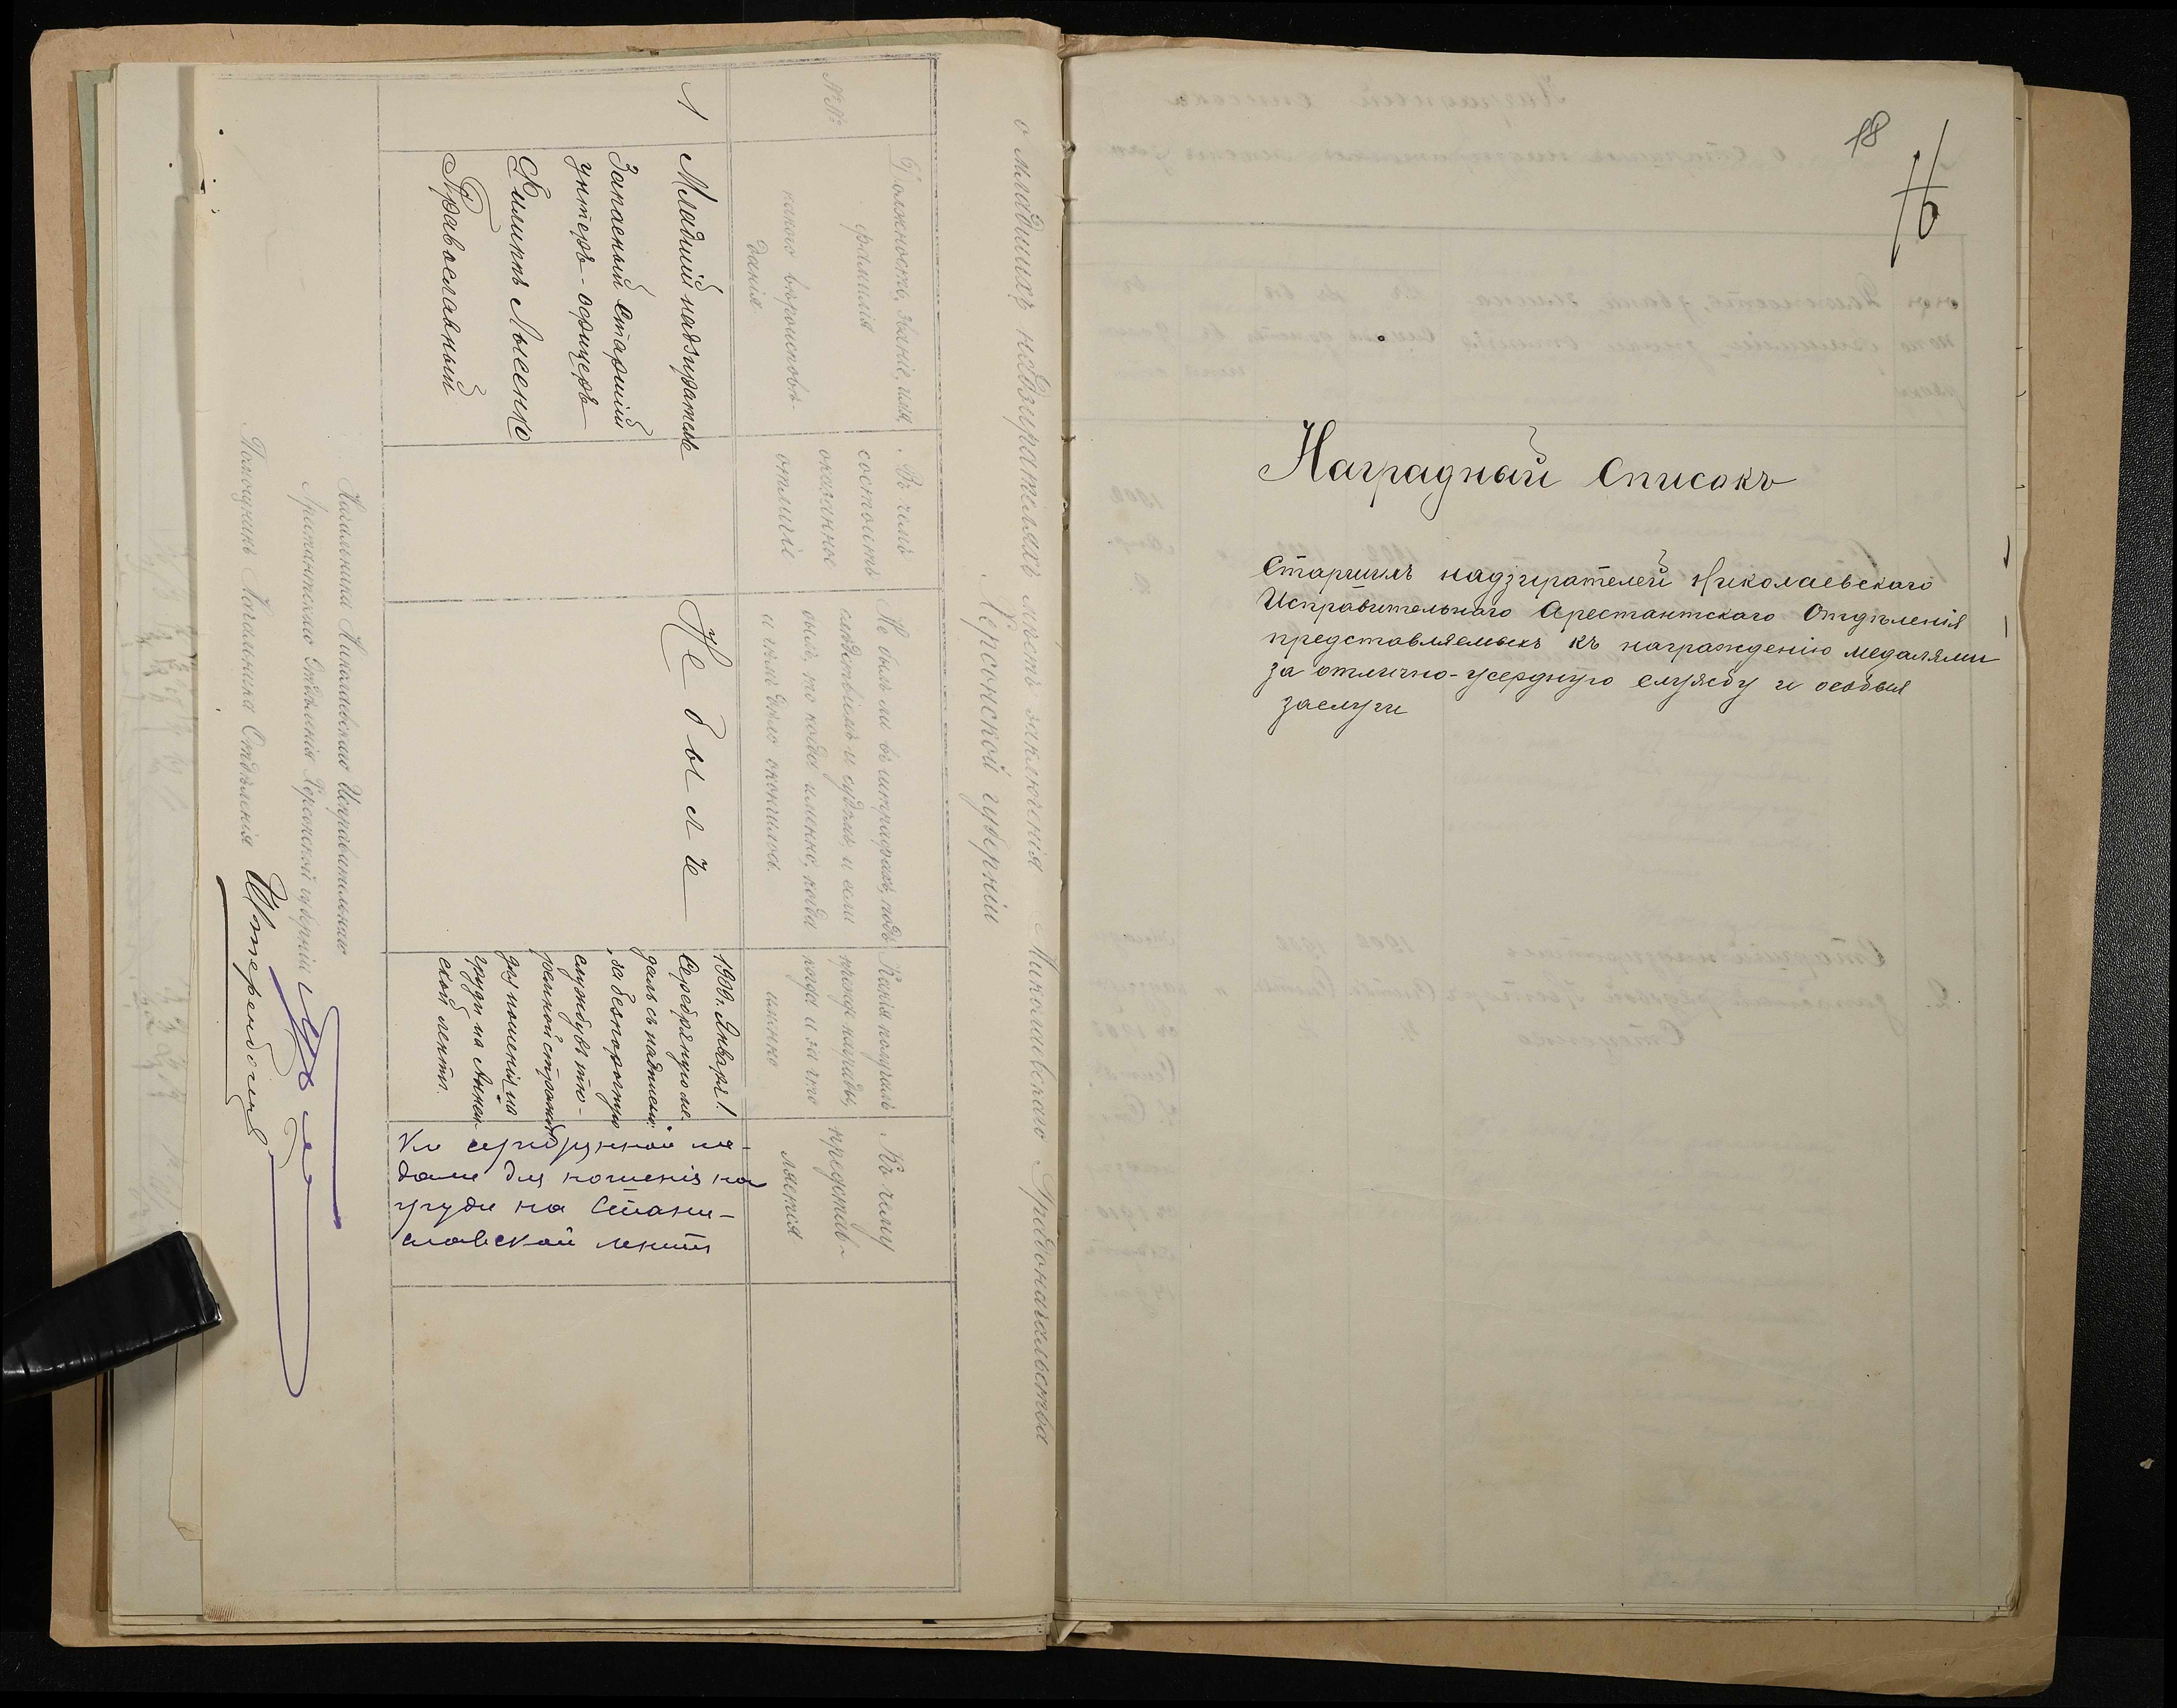 о младшихъ надзирателяхъ мѣстъ заключенія Николаевскаго Градоначальства
Херсонской губерніи
№№
Должность, званіе, имя,
фамилія
какого вѣроисповѣ-
данія
Въ чемъ
состоитъ
оказанное
отличіе
Не былъ ли въ штрафахъ, подъ
слѣдствіемъ и судомъ, и если
былъ, то когда именно, когда
и чѣмъ дѣло окончилось.
Какія получилъ
прежде награды,
когда и за что
именно
Къ чему
представ-
ляется
1
Младшій надзиратель
Запасный Старшій
унтеръ-офицеръ
Филиппъ Лысенко
Православный
Не былъ
1909. Января 1
Серебряную ме-
даль съ надписью:
„за безпорочную
службу въ тю-
ремной стражѣ"
для ношенія на
груди на Аннен-
ской лентѣ.
Къ серебрянной ме-
дали для ношенія на
груди на Стани-
славской лентѣ
Начальника Николаевскаго Исправительнаго
Арестантскаго Отдѣленія Херсонской губерніи
Помощникъ Начальника Отдѣленія
18
16
Наградный Списокъ
Старшихъ надзирателей Николаевскаго
Исправительнаго Арестантскаго Отдѣленія
представляемыхъ къ награжденію медалями
за отлично-усердную службу и особыя
заслуги